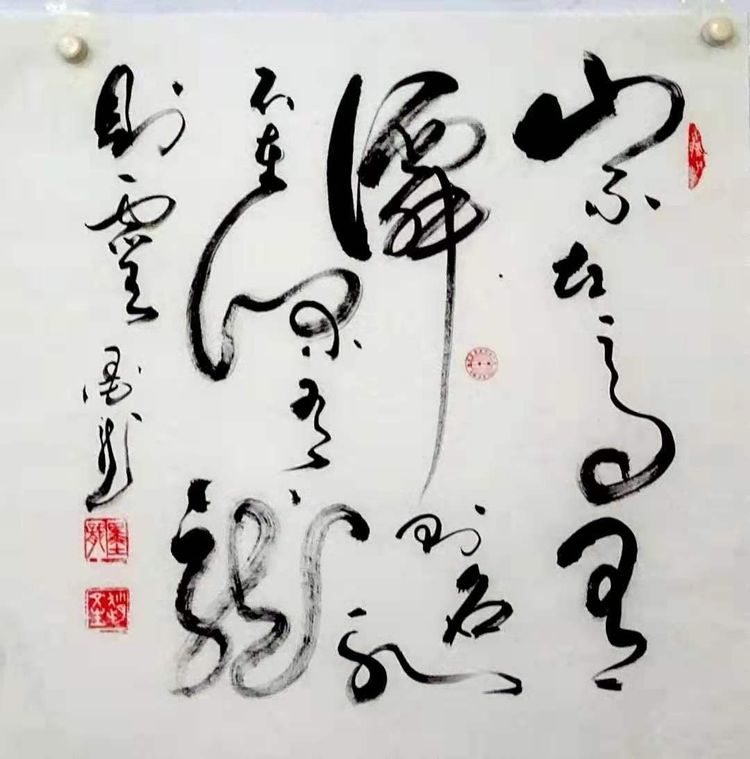 山不在高有
僊則名水
不在深有龍
則靈
墨龍